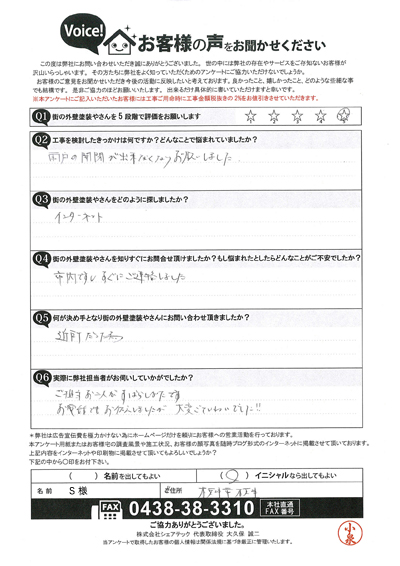 Voice!
お客様の声をお聞かせください
この度は弊社にお問い合わせいただき誠にありがとうございました。世の中には弊社の存在やサービスをご存知ないお客様が
沢山いらっしゃいます。その方たちに弊社をよく知っていただくためのアンケートにご協力いただけないでしょうか。
お客様のご意見をお聞かせいただき今後の活動に反映したいと考えております。良かったこと、嬉しかったこと、どのような些細な事
でも結構です。是非ご協力のほどお願いいたします。出来るだけ具体的に書いていただけますと幸いです。
※本アンケートにご記入いただいたお客様には工事ご用命時に工事金額税抜きの2%をお値引きさせていただきます。
Q1 街の外壁塗装やさんを5段階で評価をお願いします
Q2 工事を検討したきっかけは何ですか?どんなことで悩まれていましたか?
雨戸の開閉が出来なくなりお願いしました
Q3 街の外壁塗装やさんをどのように探しましたか?
インターネット
Q4 街の外壁塗装やさんを知りすぐにお問合せ頂けましたか?もし悩まれたとしたらどんなことがご不安でしたか?
市内ですしすぐにご連絡しました
Q5 何が決め手となり街の外壁塗装やさんにお問い合わせ頂きましたか?
近所だった為
Q6 実際に弊社担当者がお伺いしていかがでしたか?
ご担当お二人がすばらしかったです
＊弊社は広告宣伝費を極力かけない為にホームページだけを頼りにお客様への営業活動を行っております。
本アンケート用紙またはお客様宅の調査風景や施工状況、お客様の顔写真を随時ブログ形式のインターネットに掲載させて頂いております。
上記内容をインターネットや印刷物に掲載させて頂いてもよろしいでしょうか?
下記の中から〇印をお付下さい。
( )名前を出してもよい (〇)イニシャルなら出してもよい
名前 S様 ご住所
FAX 0438-38-3310 本社直通 FAX番号
ご協力ありがとうございました。
株式会社シェアテック 代表取締役 大久保 誠二
当アンケートで取得したお客様の個人情報は関係法規に基づき厳正に管理いたします。
小泉